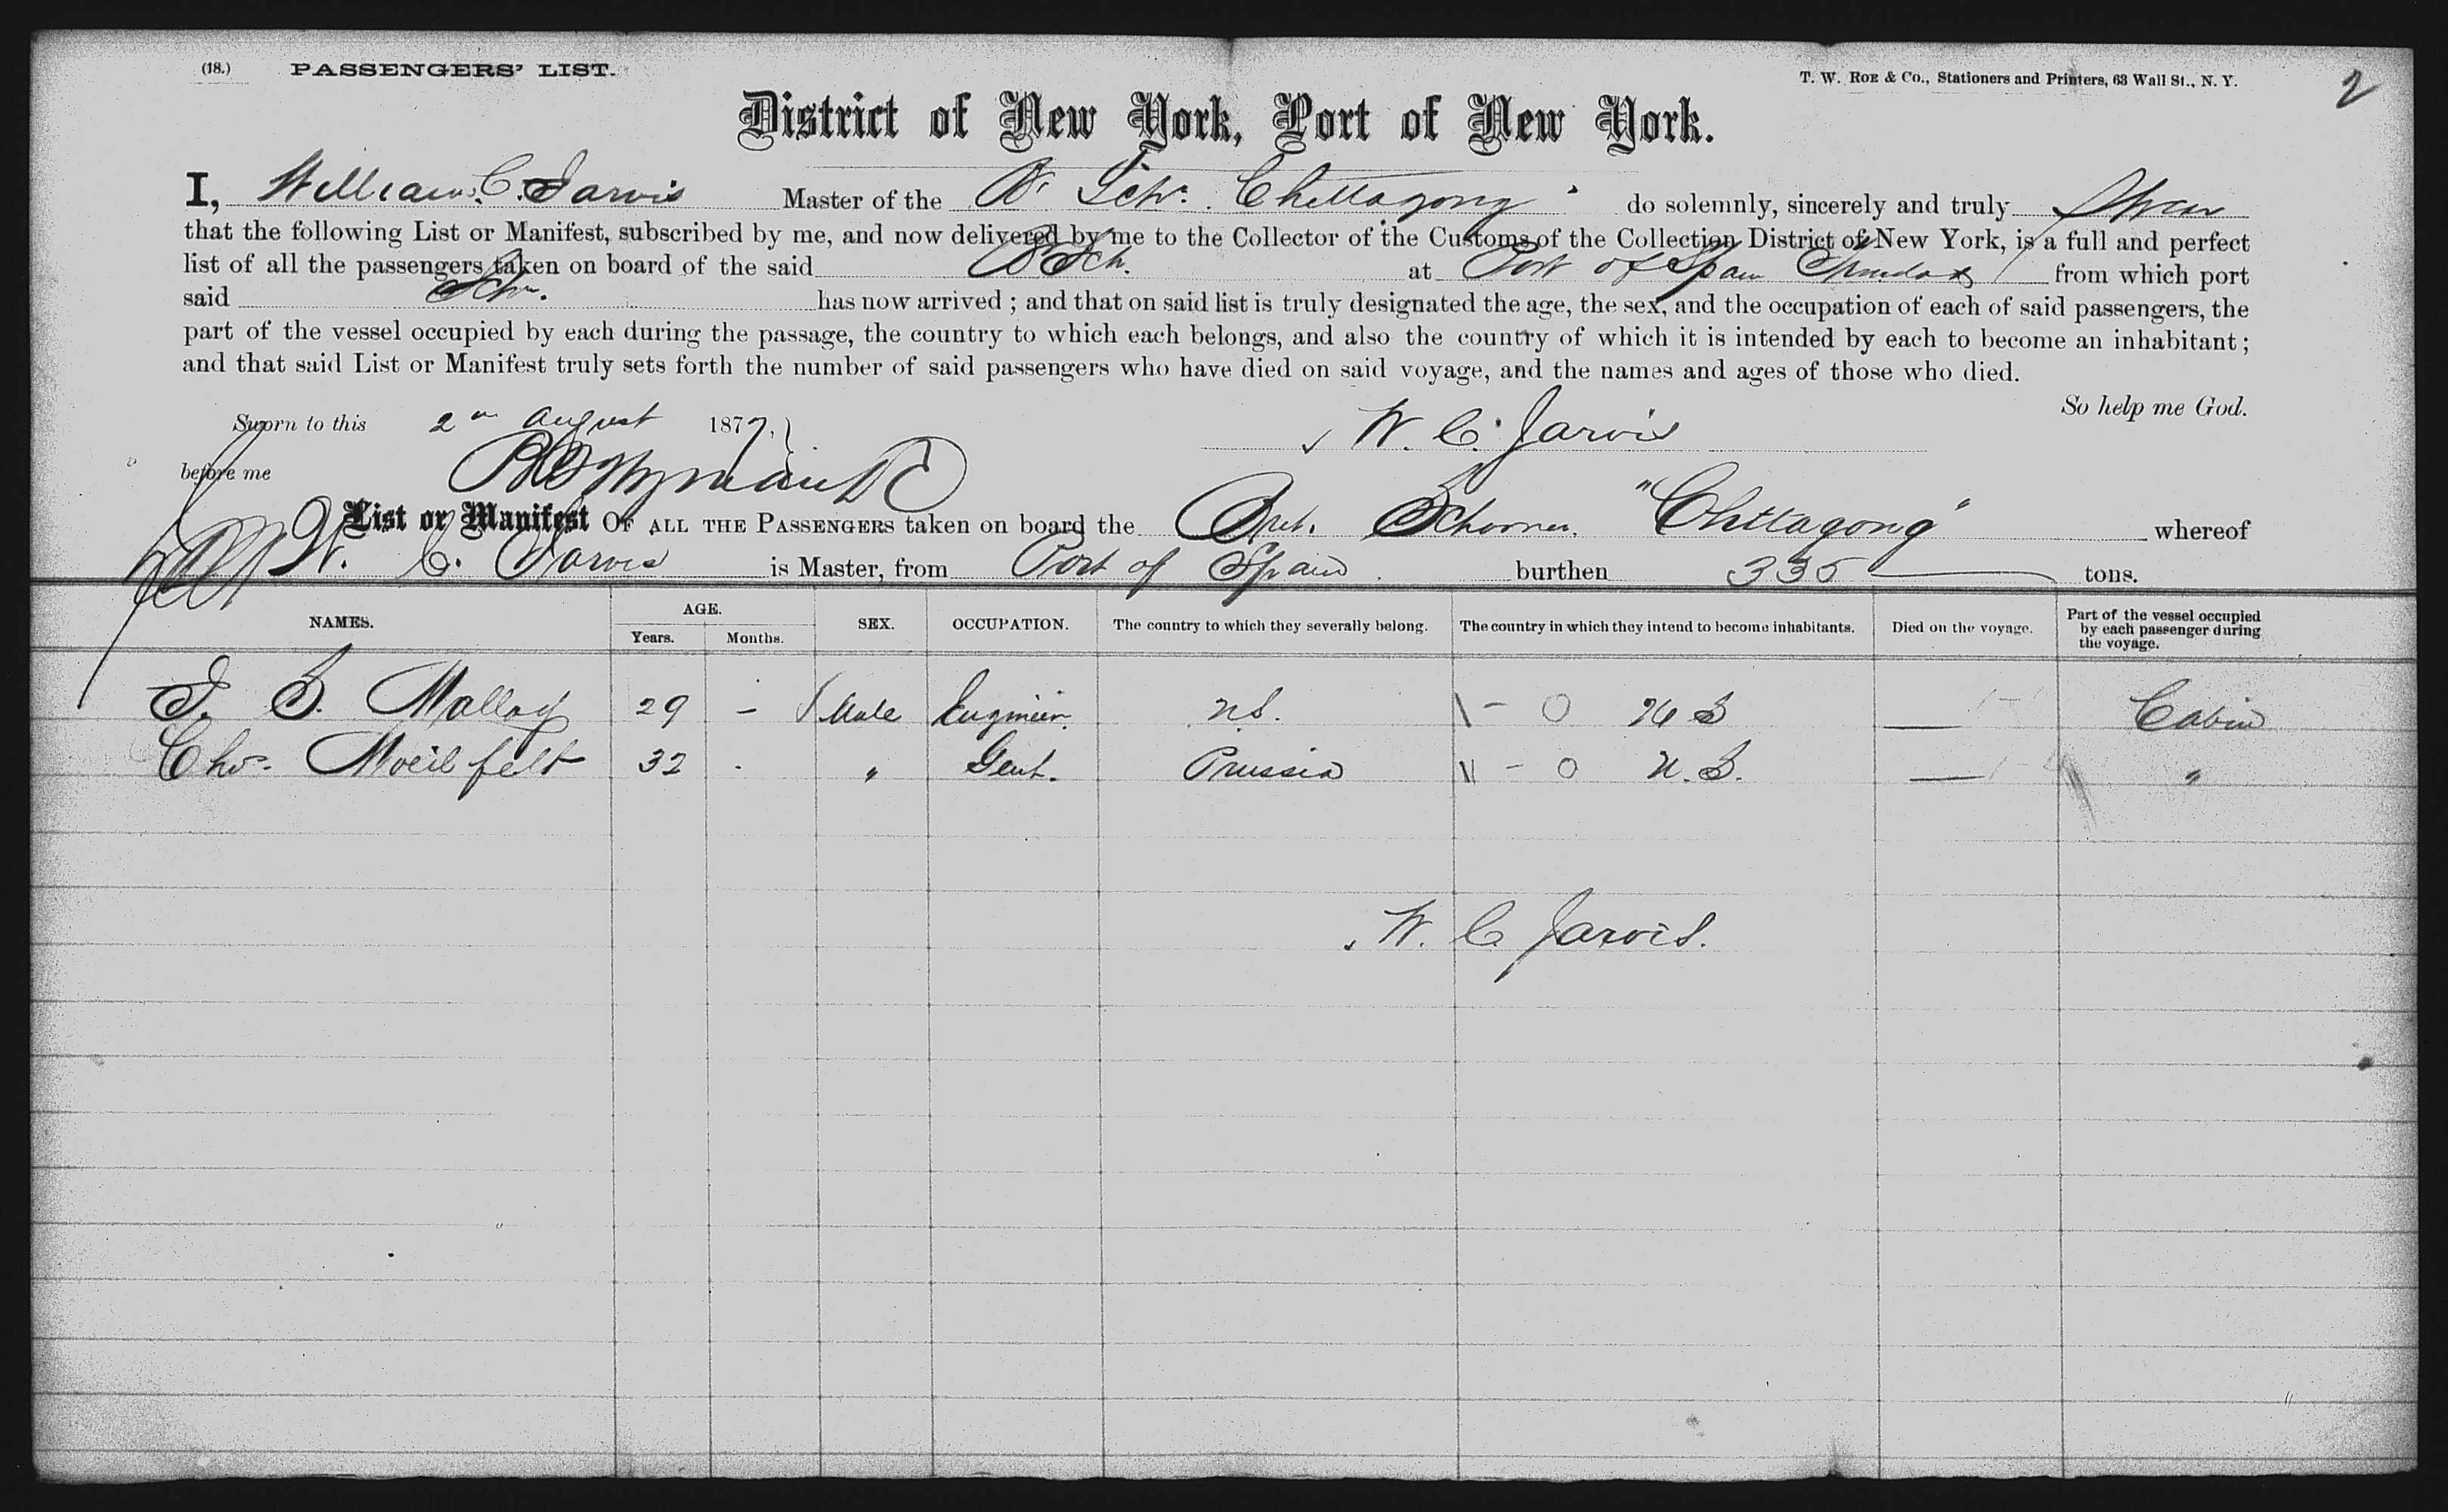 (18.) PASSENGERS' LIST. T. W. ROE & Co., Stationers and Printers, 63 Wall St., N. Y. 2
District of New York, Port of New York.
I, William C. Jarvis Master of the B. Schr. Chittagong do solemnly, sincerely and truly Swear
that the following List or Manifest, subscribed by me, and now delivered by me to the Collector of the Customs of the Collection District of New York, is a full and perfect
list of all the passengers taken on board of the said B Sch. at Port of Spain from which port
said Schr. has now arrived ; and that on said list is truly designated the age, the sex, and the occupation of each of said passengers, the
part of the vessel occupied by each during the passage, the country to which each belongs, and also the country of which it is intended by each to become an inhabitant ;
and that said List or Manifest truly sets forth the number of said passengers who have died on said voyage, and the names and ages of those who died.
So help me God.
Sworn to this 2 August 1877,
W. C. Jarvis
before me
List or Manifest OF ALL THE PASSENGERS taken on board the Brit. Schooner "Chittagong" whereof
W. C. Jarvis is Master, from Port of Spain burthen 335 tons.
NAMES. AGE. Years. Months. SEX. OCCUPATION. The country to which they severally belong. The country in which they intend to become inhabitants. Died on the voyage. Part of the vessel occupied by each passenger during the voyage.
J. S. Malloy 29 - Male Engineer U.S. \ - O U S — Cabin
Chs. 32 . " Gent. Prussia \\ - O U.S. — "
W. C Jarvis.